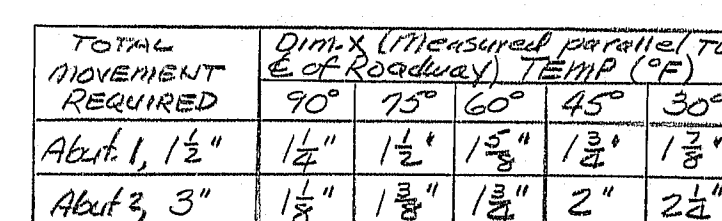 TOTAL MOVEMENT REQUIRED
Dim. X (Measured parallel To
℄ of Roadway) TEMP (°F)
90° 75° 60° 45° 30°
Abut. 1, 1 1/2" 1 1/4" 1 1/2" 1 5/8" 1 3/4" 1 7/8"
Abut 2, 3" 1 1/8" 1 3/8" 1 3/4" 2" 2 1/4"